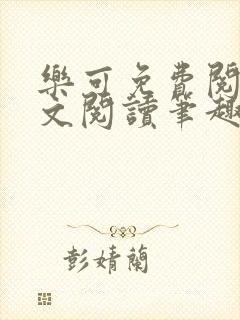 樂可免費閱
文閱讀筆趣
彭婧蘭